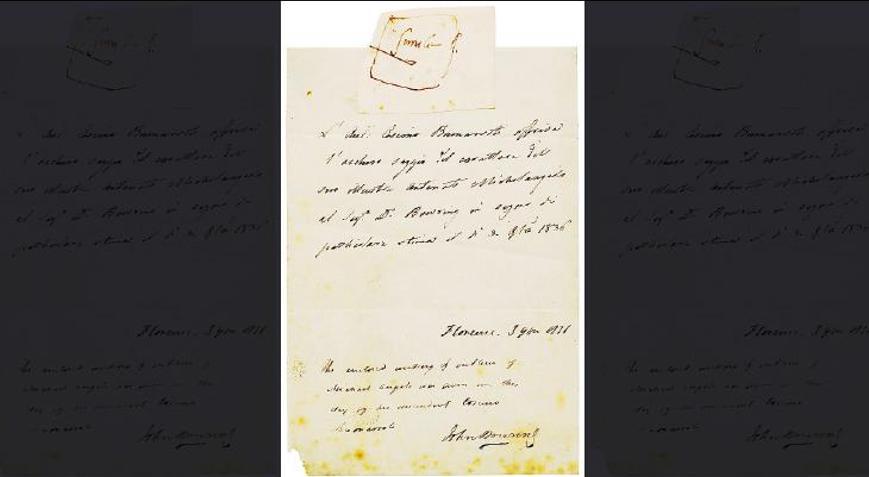 Simile
L' Aul. Cosimo Buonarroti
l' acchiuso saggio del carattere del
suo illustre antenato Michelangelo
al Sigr. D. Bowring in segno di
particolare stima il dì 2 1836
Florence. 3 1836
The enclosed writing & outlines of
Michael Angelo was given me this
day by his descendant Cosimo
Buonarroti
John Bowring